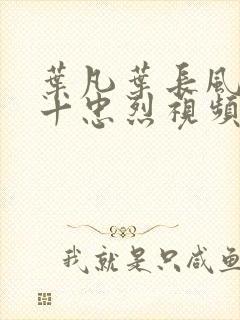 葉凡葉長風
十忠烈視頻
我就是只咸鱼